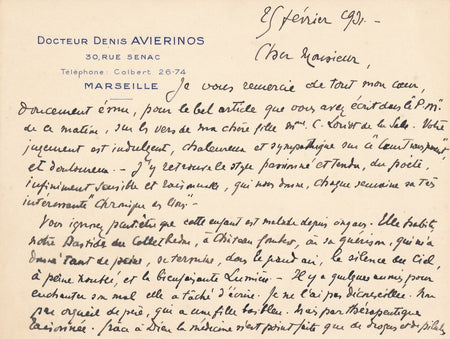 25 février 1931.-
DOCTEUR DENIS AVIERINOS
30, RUE SENAC
Téléphone: Colbert 26-74
MARSEILLE
Cher Monsieur,
Je vous remercie de tout mon cœur,
doucement ému, pour le bel article que vous avez écrit dans le P. M.
de ce matin, sur les vers de ma chère fille Mme C. Louist de la Salle. Votre
jugement est indulgent, chaleureux et sympathique sur ce "Cœur transparent"
et douloureux. - J'y retrouve le style passionné et tendre, du poète,
infiniment sensible et raisonnable, qui nous donne, chaque semaine sa très
intéressante "Chronique des livres".-
Vous ignorez peut-être que cette enfant est malade depuis un an. Elle habite
notre Bastide du Collet, à Château Gombert, où sa guérison, qui m'a
donné tant de peine, se termine, dans le grand air, le silence du Ciel
à peine troublé, et la bienfaisante Lumière. - Il y a quelques mois, pour
enchanter son mal elle a tâché d'écrire. Je ne l'ai pas découragée. Non
par orgueil de père, qui a une fille bas bleu. Mais par thérapeutique
raisonnée. Grâce à Dieu la médecine n'est point faite que de drogues et de pilules